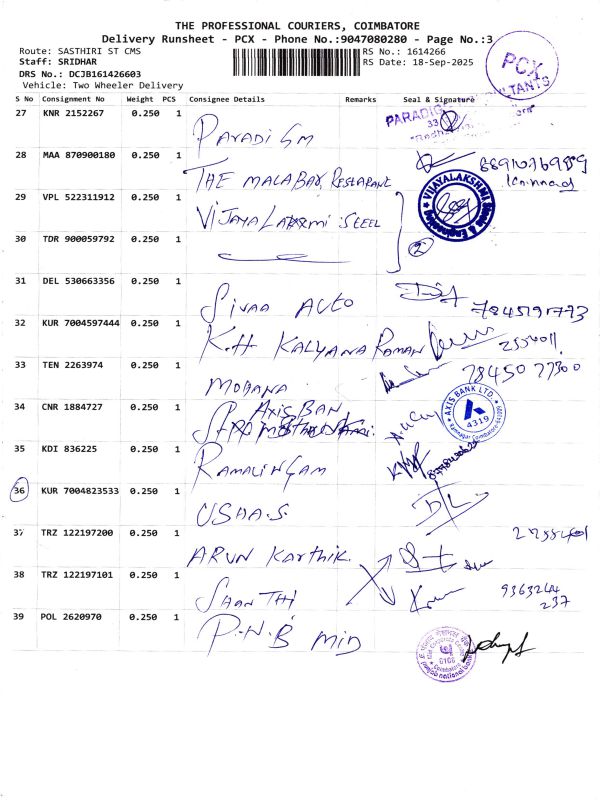 THE PROFESSIONAL COURIERS, COIMBATORE
Delivery Runsheet - PCX - Phone No.:9047080280 - Page No.:3
Route: SASTHIRI ST CMS
RS No.: 1614266
Staff: SRIDHAR
RS Date: 18-Sep-2025
DRS No.: DCJB161426603
Vehicle: Two Wheeler Delivery
PCX
S No Consignment No Weight PCS Consignee Details Remarks Seal & Signature
27 KNR 2152267 0.250 1 Paradigm
28 MAA 870900180 0.250 1 THE MALABAR RESTARANT
29 VPL 522311912 0.250 1 VIJAYA LAXMI STEEL VIJAYALAKSHMI
30 TDR 900059792 0.250 1 2
31 DEL 530663356 0.250 1 SIVAA AUTO 7845191773
32 KUR 7004597444 0.250 1 K.H KALYANA RAMAN
33 TEN 2263974 0.250 1 MOHANA 7845077300
34 CNR 1884727 0.250 1 AXIS BAN AXIS BANK LTD. 4319
35 KDI 836225 0.250 1 RAMALINGAM
36 KUR 7004823533 0.250 1 USHA.S
37 TRZ 122197200 0.250 1 ARUN Karthik
38 TRZ 122197101 0.250 1 SHANTHI 9363244
237
39 POL 2620970 0.250 1 P.N.B MID punjab national bank